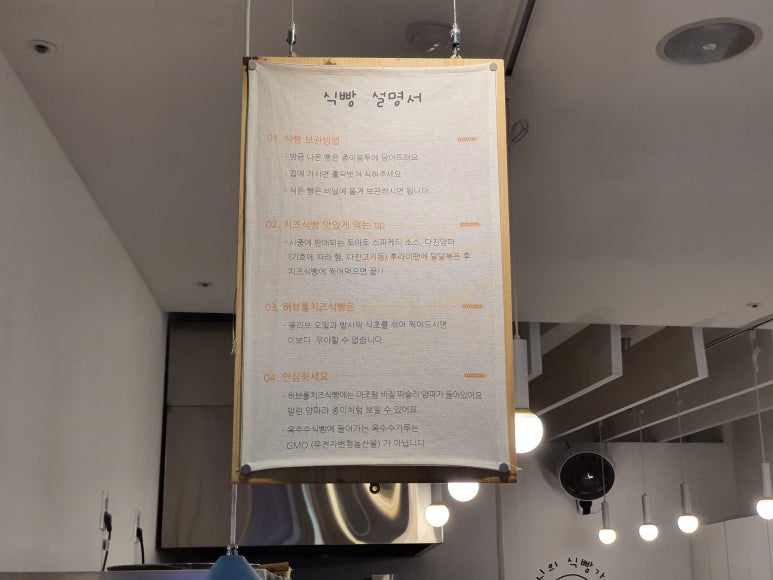 식빵 설명서
01. 식빵 보관방법
- 방금 나온 빵은 종이봉투에 담아드려요
- 집에 가시면 홀딱벗겨 식혀주세요
- 식은 빵은 비닐에 옮겨 보관하시면 됩니다.
02. 치즈식빵 맛있게 먹는 tip
- 시중에 판매되는 토마토 스파게티 소스, 다진양파
(기호에 따라 햄, 다진고기등) 후라이팬에 달달볶은 후
치즈식빵에 찍어먹으면 끝!!
03. 허브롤치즈식빵은
- 올리브 오일과 발사믹 식초를 섞어 찍어드시면
이보다 우아할 수 없습니다.
04. 안심하세요
- 허브롤치즈식빵에는 마조람 바질 파슬리 양파가 들어있어요
말린 양파라 종이처럼 보일 수 있어요.
- 옥수수식빵에 들어가는 옥수수가루는
GMO (유전자변형농산물) 가 아닙니다.
니의 식빵가